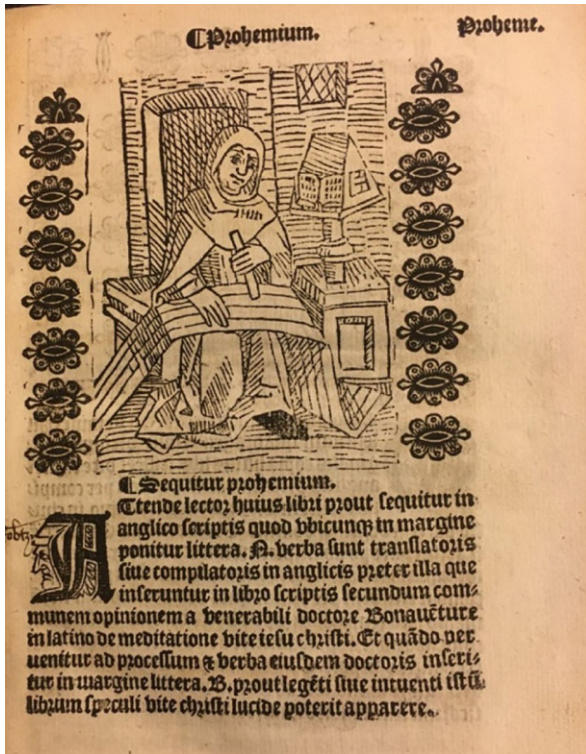 ¶Prohemium. Proheme.
¶Sequitur prohemium.
Attende lector huius libri prout sequitur in
anglico scriptis quod vbicunqꝫ in margine
ponitur littera. N. verba sunt translatoris
siue compilatoris in anglicis preter illa que
inseruntur in libro scriptis secundum com⸗
munem opinionem a venerabili doctore Bonauēture
in latino de meditatione vite iesu christi. Et quādo per
uenitur ad processum ⁊ verba eiusdem doctoris inseri⸗
tur in margine littera. B. prout legēti siue intuenti istū
librum speculi vite christi lucide poterit apparere.